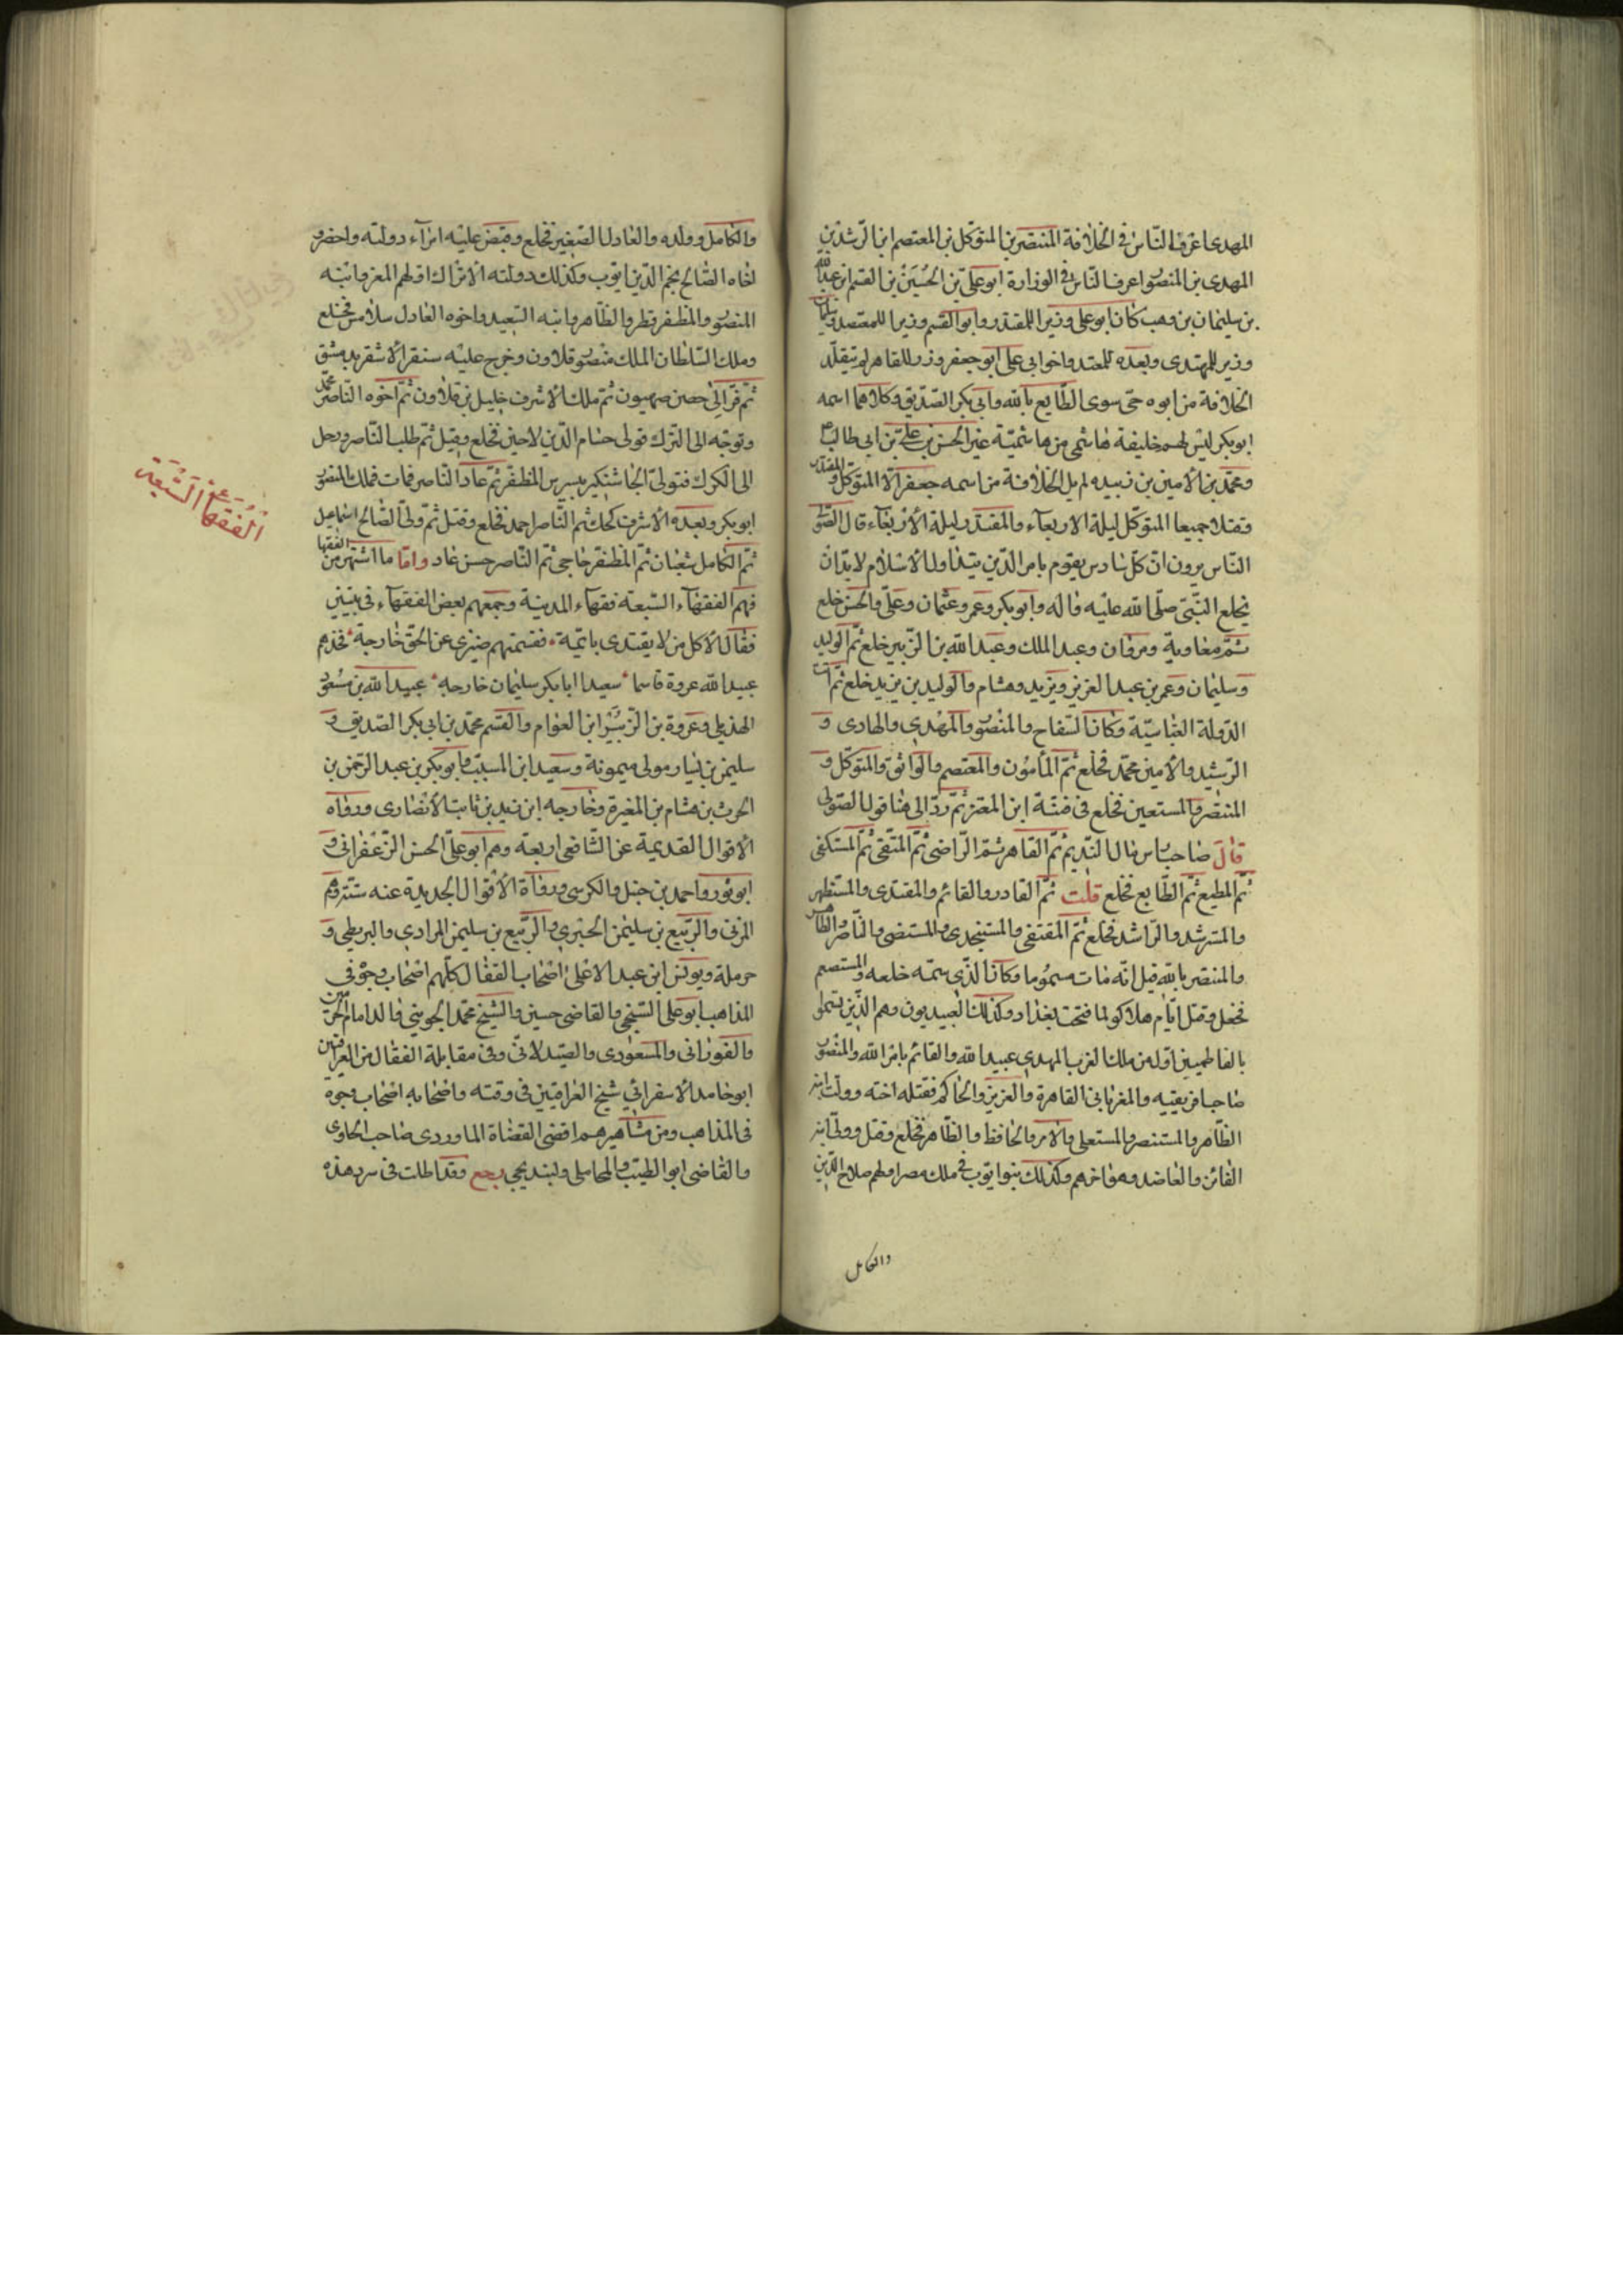 المهدى اعرف الناس فى الخلافة المنتصر بن المتوكل بن المعتصم ابن الرشد بن
المهدى بن المنصور اعرف الناس فى الوزارة ابو على بن الحسين بن القسم ابن عبد الله
بن سليمان بن وهب كان ابو على وزير المقتدر وابو القسم وزيرا للمعتضد وسليمان
وزير للمهتدى وبعده للمعتمد واخو ابى على ابو جعفر وزر للقاهر لم يتقلد
الخلافة من ابوه حى سوى الطايع بالله وابى بكر الصديق وكلاهما اسمه
ابو بكر ليس لهم خليفة هاشمى من هاشمية غير الحسن بن على بن ابى طالب
ومحمد بن الامين بن زبيده لم يل الخلافة من اسمه جعفر الا المتوكل والمقتدر
وقتلا جميعا المتوكل ليلة الاربعاء والمقتدر ليلة الاربعاء قال الصولى
الناس يرون ان كل سادس يقوم بامر الدين منذ اول الاسلام لابد ان
يخلع النبى صلى الله عليه واله وابو بكر وعمر وعثمان وعلى والحسن خلع
ثم معاوية ومروان وعبد الملك وعبد الله بن الزبير خلع ثم الوليد
وسليمان وعمر بن عبد العزيز ويزيد وهشام والوليد بن يزيد خلع ثم اتت
الدولة العباسية وكان السفاح والمنصور والمهدى والهادى و
الرشيد والامين محمد فخلع ثم المأمون والمعتصم والواثق والمتوكل و
المنتصر والمستعين فخلع فى فتنة ابن المعتز ثم رد الى هنا قول الصولى
قال صاحب راس مال النديم ثم القاهر ثم الراضى ثم المتقى ثم المستكفى
ثم المطيع ثم الطايع فخلع قلت ثم القادر والقائم والمقتدى والمستظهر
والمسترشد والراشد فخلع ثم المقتفى والمستنجدى والمستضى والناصر والظاهر
والمنتصر بالله قيل انه مات مسموما وكان الذى سمه خلعه والمستعصم
فخلع وقتل ايام هلاكو لما فتحت بغداد وكذلك العبيديون وهم الذين يتسموا
بالفاطميين اوله من ملك الغرب المهدى عبيد الله والقائم بامر الله والمنصور
صاحب افريقيه والمعز بانى القاهرة والعزيز والحاكم فقتله اخته وولت ابنه
الظاهر والمستنصر والمستعلى والامر والحافظ والظاهر فخلع وقتل وولى ابنه
الفائز والعاضد وهو اخرهم وكذلك بنوا ايوب فى ملك مصر اولهم صلاح الدين
والكامل
والكامل وولده والعادل الصغير فخلع وقبض عليه امراء دولته واحضروا
اخاه الصالح نجم الدين ايوب وكذلك دولته الاتراك اولهم المعز وابنه
المنصور والمظفر قطز والظاهر وابنه السعيد واخوه العادل سلامس فخلع
وملك السلطان الملك منصور قلاون وخرج عليه سنقر الاشقر بدمشق
ثم فر الى حصن صهيون ثم ملك الاشرف خليل بن قلاون ثم اخوه الناصر محمد
وتوجه الى الترك فولى حسام الدين لاجين فخلع وقتل ثم طلب الناصر ورحل
الى الكرك فتولى الجاشنكير بيبرس المظفر ثم عاد الناصر فمات فملك المنصور
ابو بكر وبعده الاشرف كجك ثم الناصر احمد فخلع وقتل ثم ولى الصالح اسماعيل
ثم الكامل شعبان ثم المظفر حاجى ثم الناصر حسن عاد واما ما اشتهر من الفقها
فهم الفقهاء السبعة فقهاء المدينة وجمعهم بعض الفقهاء فى بيتين
فقال الا كل من لا يقتدى بائمة فقسمتهم ضيزى عن الحق خارجة فخذهم
عبيد الله عروة قاسما سعيدا ابا بكر سليمان خارجه عبيد الله بن مسعود
الهذيلى وعروة بن الزبير ابن العوام والقسم محمد بن ابى بكر الصديق و
سليمن بن يسار مولى ميمونة وسعيد ابن المسيب وابو بكر بن عبد الرحمن بن
الحرث بن هشام بن المغيرة وخارجه ابن زيد بن ثابت الانصارى ورواه
الاقوال القديمة عن الشافعى اربعة وهم ابو على الحسن الزعفرانى و
ابو ثور واحمد بن حنبل والكرسى ورواة الاقوال الجديدة عنه ستة وهم
المزنى والربيع بن سليمن الجيزى والربيع بن سليمن المرادى والبويطى و
حرملة ويونس ابن عبد الاعلى اصحاب القفال كلهم اصحاب وجوه فى
المذاهب ابو على السنجى والقاضى حسين والشيخ محمد الجوينى والد امام الحرمين
والفورانى والمسعودى والصيدلانى وفى مقابلة القفال من العراقيين
ابو حامد الاسفراينى شيخ العراقيين فى وقته واصحابه اصحاب وجوه
فى المذاهب ومن مشاهيرهم اقضى القضاة الماوردى صاحب الحاوى
والقاضى ابو الطيب والمحاملى والبندنيجى رجع وقد اطلت فى سرد هذه
الفقهاء السبعة